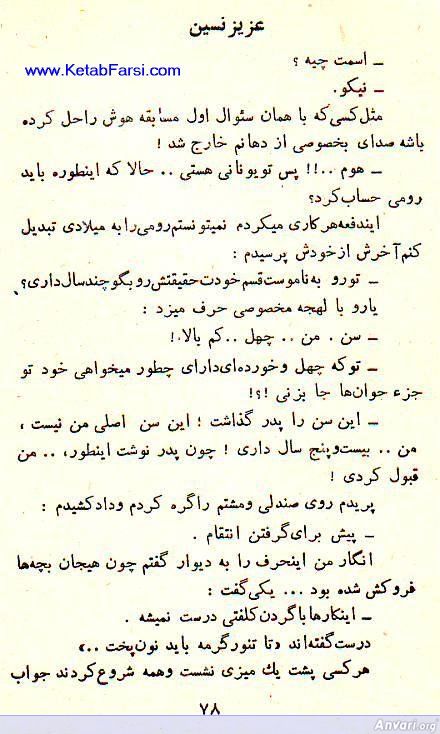 عزیزنسین
ــ اسمت چیه ؟
www.KetabFarsi.com
ــ نیکو.
مثل‌کسی‌که با همان سئوال اول مسابقه هوش راحل کرده
باشه صدای بخصوصی از دهانم خارج شد !
ــ هوم ..!! پس تویونانی هستی .. حالا که اینطوره باید
رومی حساب‌کرد؟
ایندفعه‌هرکاری میکردم نمیتونستم‌رومی‌رابه میلادی تبدیل
کنم‌آخرش ازخودش پرسیدم :
ــ تورو به‌ناموست‌قسم‌خودت‌حقیقتش‌روبگوچندسال‌داری؟
یارو با لهجه مخصوصی حرف میزد :
ــ سن . من .. چهل ..کم بالا.!
ــ توکه چهل وخورده‌ای‌دارای چطور میخواهی خود تو
جزء جوان‌ها جا بزنی !؟!
ــ این سن را پدر گذاشت ؛ این سن اصلی من نیست ،
من .. بیست‌وپنج سال داری ! چون پدر نوشت اینطور، .. من
قبول کردی !
پریدم روی صندلی ومشتم راگره کردم ودادکشیدم :
ــ پیش برای‌گرفتن انتقام .
انگار من اینحرف را به دیوار گفتم چون هیجان بچه‌ها
فروکش شده بود ... یکی‌گفت :
ــ اینکارهاباگردن‌کلفتی درست نمیشه .
درست‌گفته‌اند «تا تنورگرمه باید نون‌پخت ..»
هرکسی پشت یك میزی نشست وهمه شروع‌کردند جواب
۷۸
Anvari.org